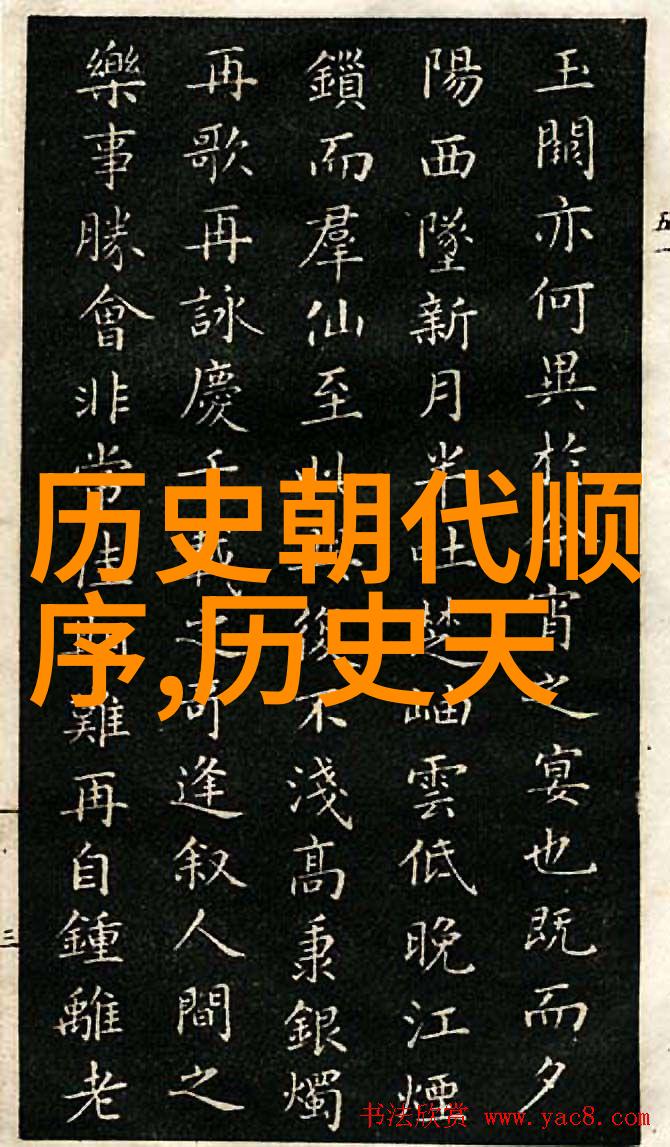 玉闕亦何異於今宵之宴也既而夕
陽西墜新月半吐楚岫雲低晚江煙
鎖而羣仙至此後不淺高秉銀燭
再歌再詠慶千載之奇逢叙人間之
樂事勝會非常佳難再自鍾離老
历史朝代顺
序,历史天
五
三
书法欣赏 www.yac8.com